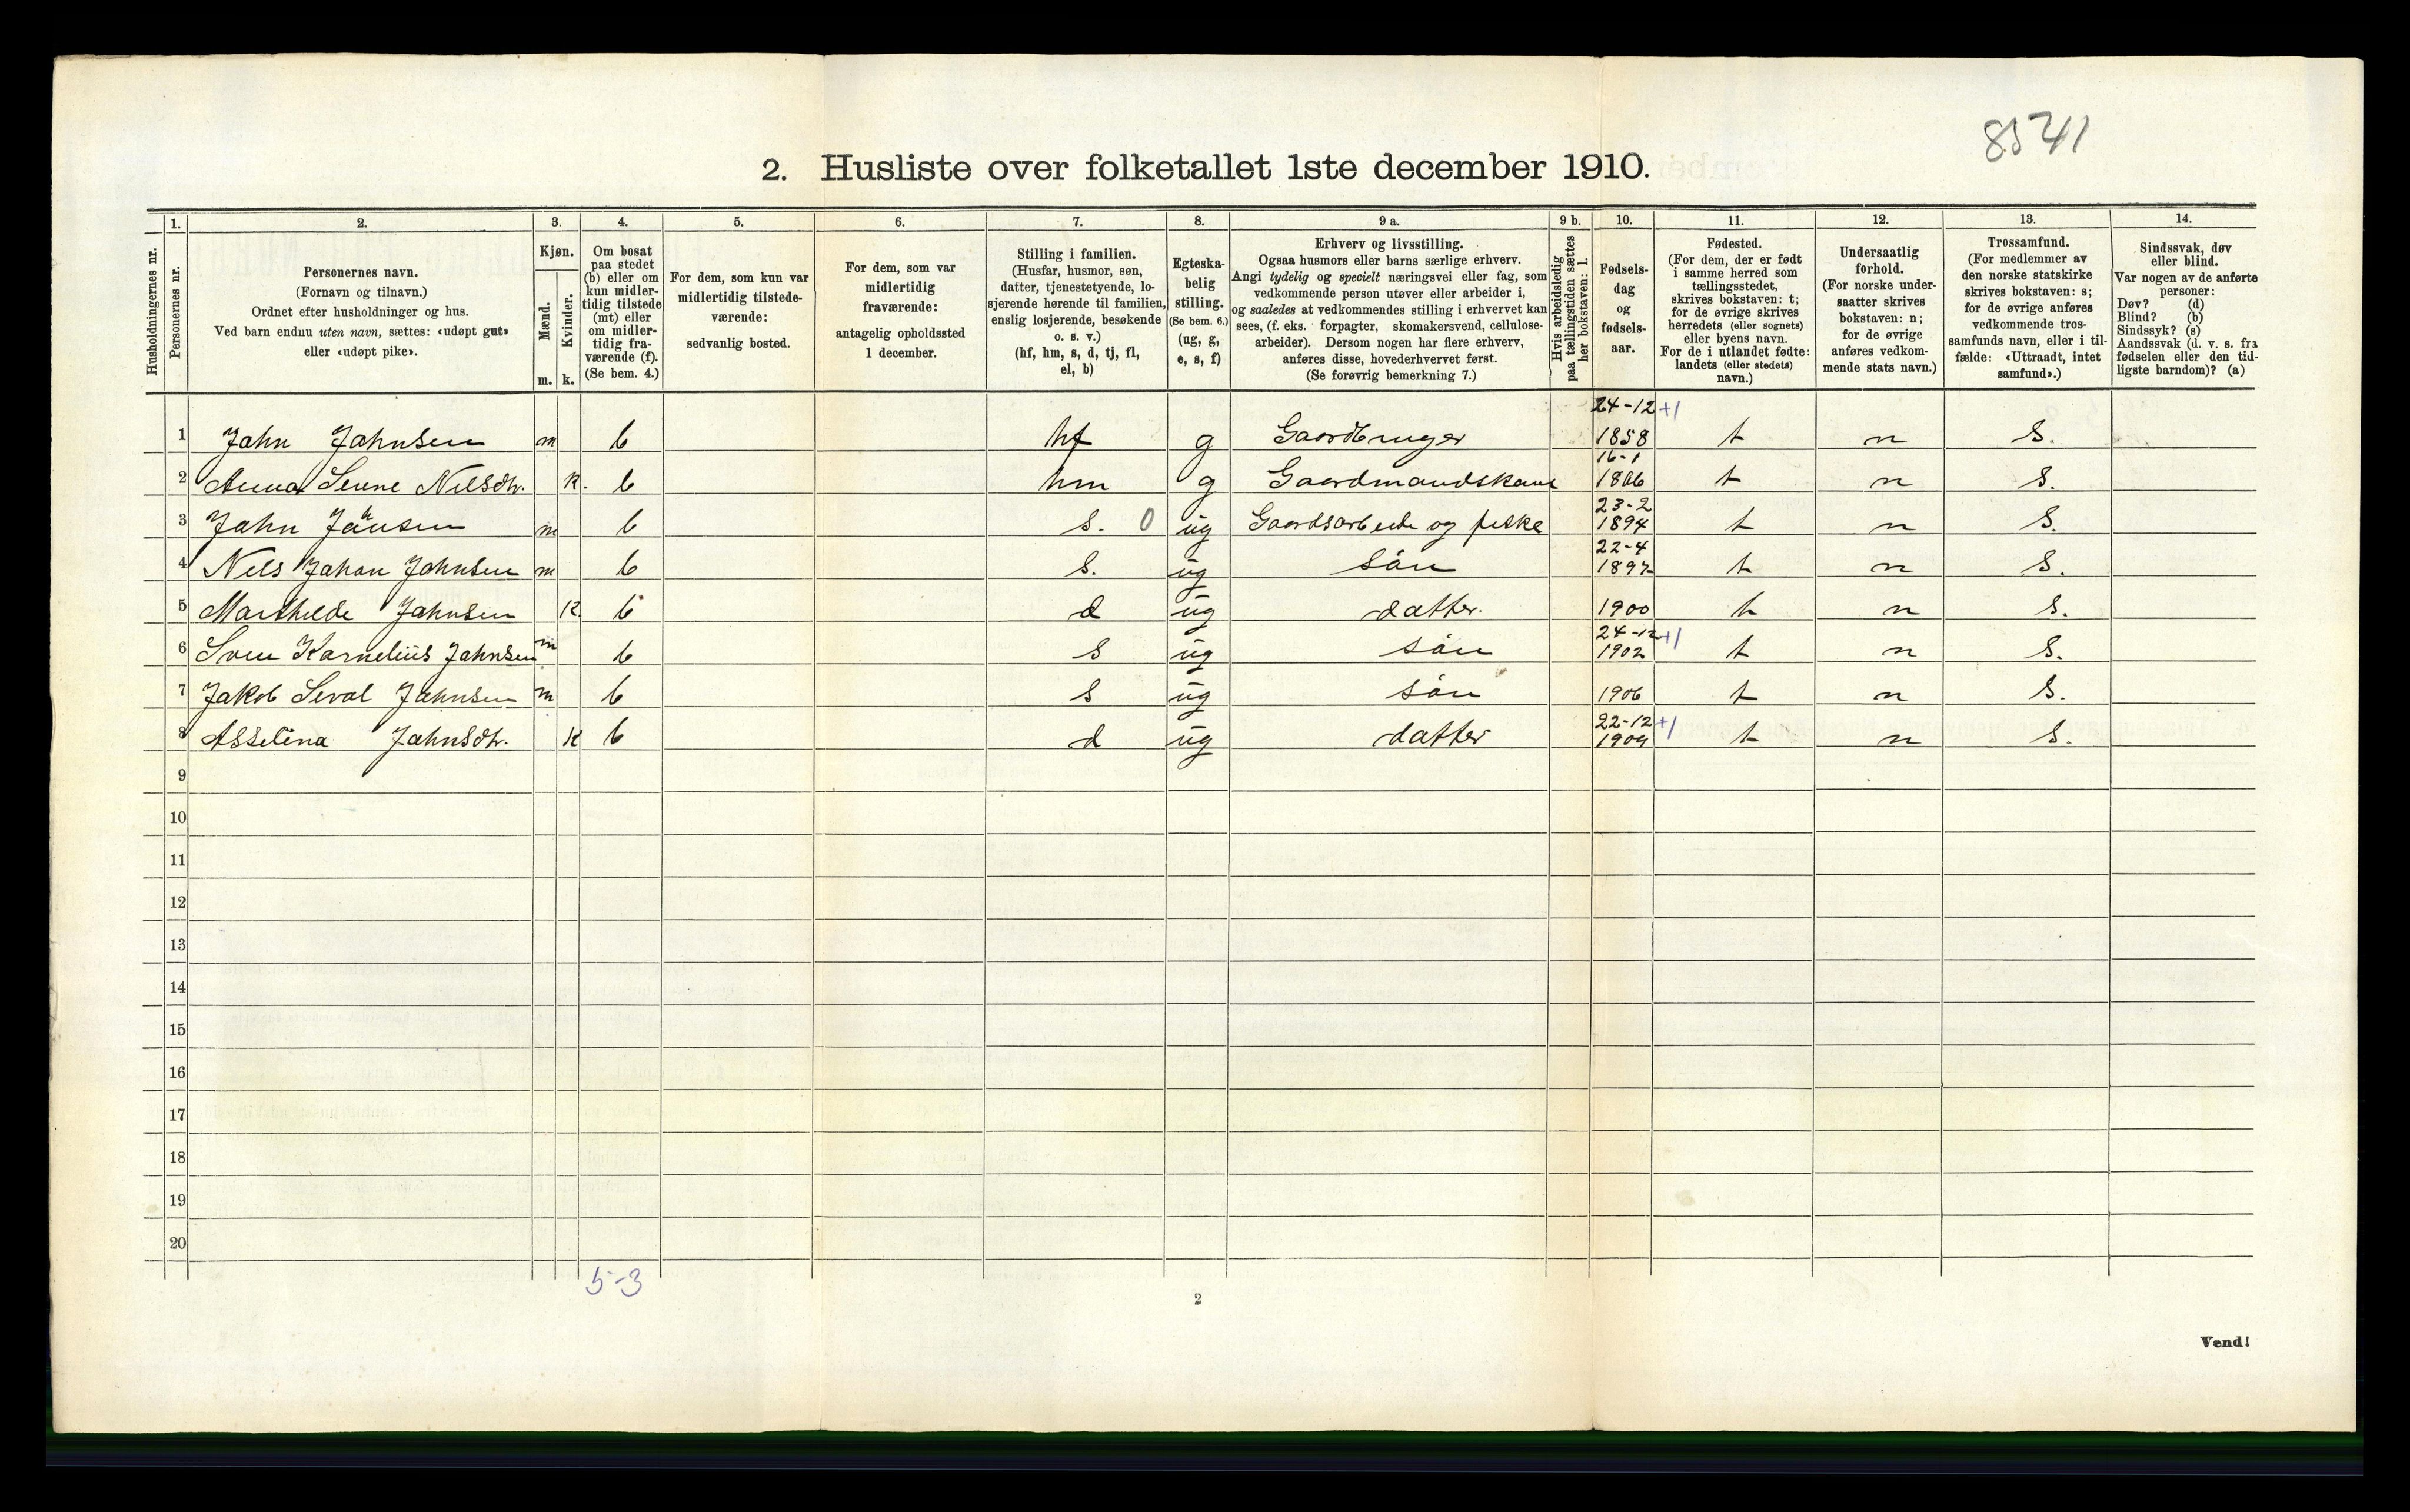 8541
2. Husliste over folketallet 1ste december 1910.
Husholdningernes nr.
1.
Personernes nr.
2.
Personernes navn.
(Fornavn og tilnavn.)
Ordnet efter husholdninger og hus.
Ved barn endnu uten navn, sættes: «udøpt gut»
eller «udøpt pike».
3.
Kjøn.
Mænd.
Kvinder.
m. k.
4.
Om bosat
paa stedet
(b) eller om
kun midler-
tidig tilstede
(mt) eller
om midler-
tidig fra-
værende (f).
(Se bem. 4.)
5.
For dem, som kun var
midlertidig tilstede-
værende:
sedvanlig bosted.
6.
For dem, som var
midlertidig
fraværende:
antagelig opholdssted
1 december.
7.
Stilling i familien.
(Husfar, husmor, søn,
datter, tjenestetyende, lo-
sjerende hørende til familien,
enslig losjerende, besøkende
o. s. v.)
(hf, hm, s, d, tj, fl,
el, b)
8.
Egteska-
belig
stilling.
(Se bem. 6.)
(ug, g,
e, s, f)
9 a.
Erhverv og livsstilling.
Ogsaa husmors eller barns særlige erhverv.
Angi tydelig og specielt næringsvei eller fag, som
vedkommende person utøver eller arbeider i,
og saaledes at vedkommendes stilling i erhvervet kan
sees, (f. eks. forpagter, skomakersvend, cellulose-
arbeider). Dersom nogen har flere erhverv,
anføres disse, hovederhvervet først.
(Se forøvrig bemerkning 7.)
9 b.
Hvis arbeidsledig
paa tællingstiden sættes
her bokstaven: l.
10.
Fødsels-
dag
og
fødsels-
aar.
11.
Fødested.
(For dem, der er født
i samme herred som
tællingsstedet,
skrives bokstaven: t;
for de øvrige skrives
herredets (eller sognets)
eller byens navn.
For de i utlandet fødte:
landets (eller stedets)
navn.)
12.
Undersaatlig
forhold.
(For norske under-
saatter skrives
bokstaven: n;
for de øvrige
anføres vedkom-
mende stats navn.)
13.
Trossamfund.
(For medlemmer av
den norske statskirke
skrives bokstaven: s;
for de øvrige anføres
vedkommende tros-
samfunds navn, eller i til-
fælde: «Uttraadt, intet
samfund».)
14.
Sindssvak, døv
eller blind.
Var nogen av de anførte
personer:
Døv? (d)
Blind? (b)
Sindssyk? (s)
Aandssvak (d. v. s. fra
fødselen eller den tid-
ligste barndom)? (a)
1 Jahn Jahnsen m b hf g Gaardbruger 24-12 +1 1858 t n S.
2 Anna Nilsdtr. k. b hm g Gaardmandskone 16-1 1866 t n S.
3 Jahn Jahnsen m b S. 0 ug Gaardsarbeide og fiske 23-2 1894 t n S.
4 Nels Johan Jahnsen m b S. ug sön 22-4 1897 t n S.
5 Marthilde Jahnsen K b d ug datter. 1900 t n S.
6 Sven Karnelius Jahnsen m b S ug sön 24-12 +1 1902 t n S.
7 Jakob Seval Jahnsen m b S ug sön 1906 t n S.
8 Asselina Jahnsdtr. K b d ug datter 22-12 +1 1909 t n S.
9
10
11
12
13
14
15
16
17
18
19
20
5-3
2
Vend!